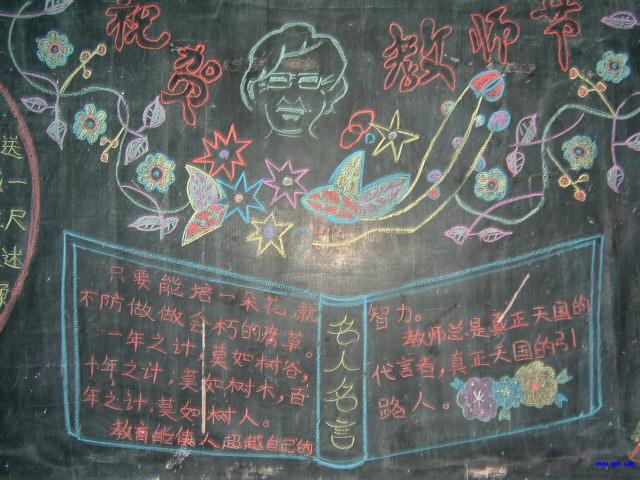 祝贺 教师节
送一尺达
只要能培一朵花,就
不防做做会朽的腐草。
一年之计,莫如树谷,
十年之计,莫如树木,百
年之计,莫如树人。
教育能使人超越自己的
名人名言
智力。
教师总是真正天国的
代言者,真正天国的引
路人。